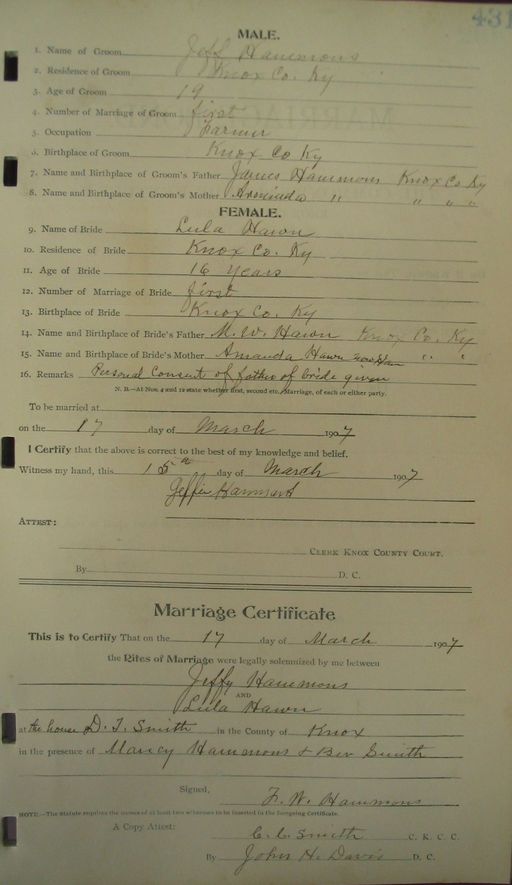 431
MALE.
1. Name of Groom Jeff Hammons
2. Residence of Groom Knox Co. Ky
3. Age of Groom 19
4. Number of Marriage of Groom first
5. Occupation Farmer
6. Birthplace of Groom Knox Co Ky
7. Name and Birthplace of Groom's Father James Hammons Knox Co Ky
8. Name and Birthplace of Groom's Mother " " " "
FEMALE.
9. Name of Bride Lula Hawn
10. Residence of Bride Knox Co. Ky
11. Age of Bride 16 years
12. Number of Marriage of Bride first
13. Birthplace of Bride Knox Co. Ky
14. Name and Birthplace of Bride's Father M. W. Hawn Knox Co. Ky
15. Name and Birthplace of Bride's Mother Amanda Hawn " "
16. Remarks Personal Consent of father of bride given
N. B.—At Nos. 4 and 12 state whether first, second etc., Marriage, of each or either party.
To be married at
on the 17 day of March 1907
I Certify that the above is correct to the best of my knowledge and belief.
Witness my hand, this 15th day of March 1907
Jeffie Hammons
ATTEST:
CLERK KNOX COUNTY COURT.
By D. C.
Marriage Certificate
This is to Certify That on the 17 day of March 1907
the Rites of Marriage were legally solemnized by me between
Jeffy Hammons
AND
Lula Hawn
at the house D. T. Smith in the County of Knox
in the presence of Mancy Hammons & Bev Smith
Signed,
F. W. Hammons
NOTE.—The Statute requires the names of at least two witnesses to be inserted in the foregoing Certificate.
A Copy Attest: C. C. Smith C. K. C. C.
By John H. Davis D. C.